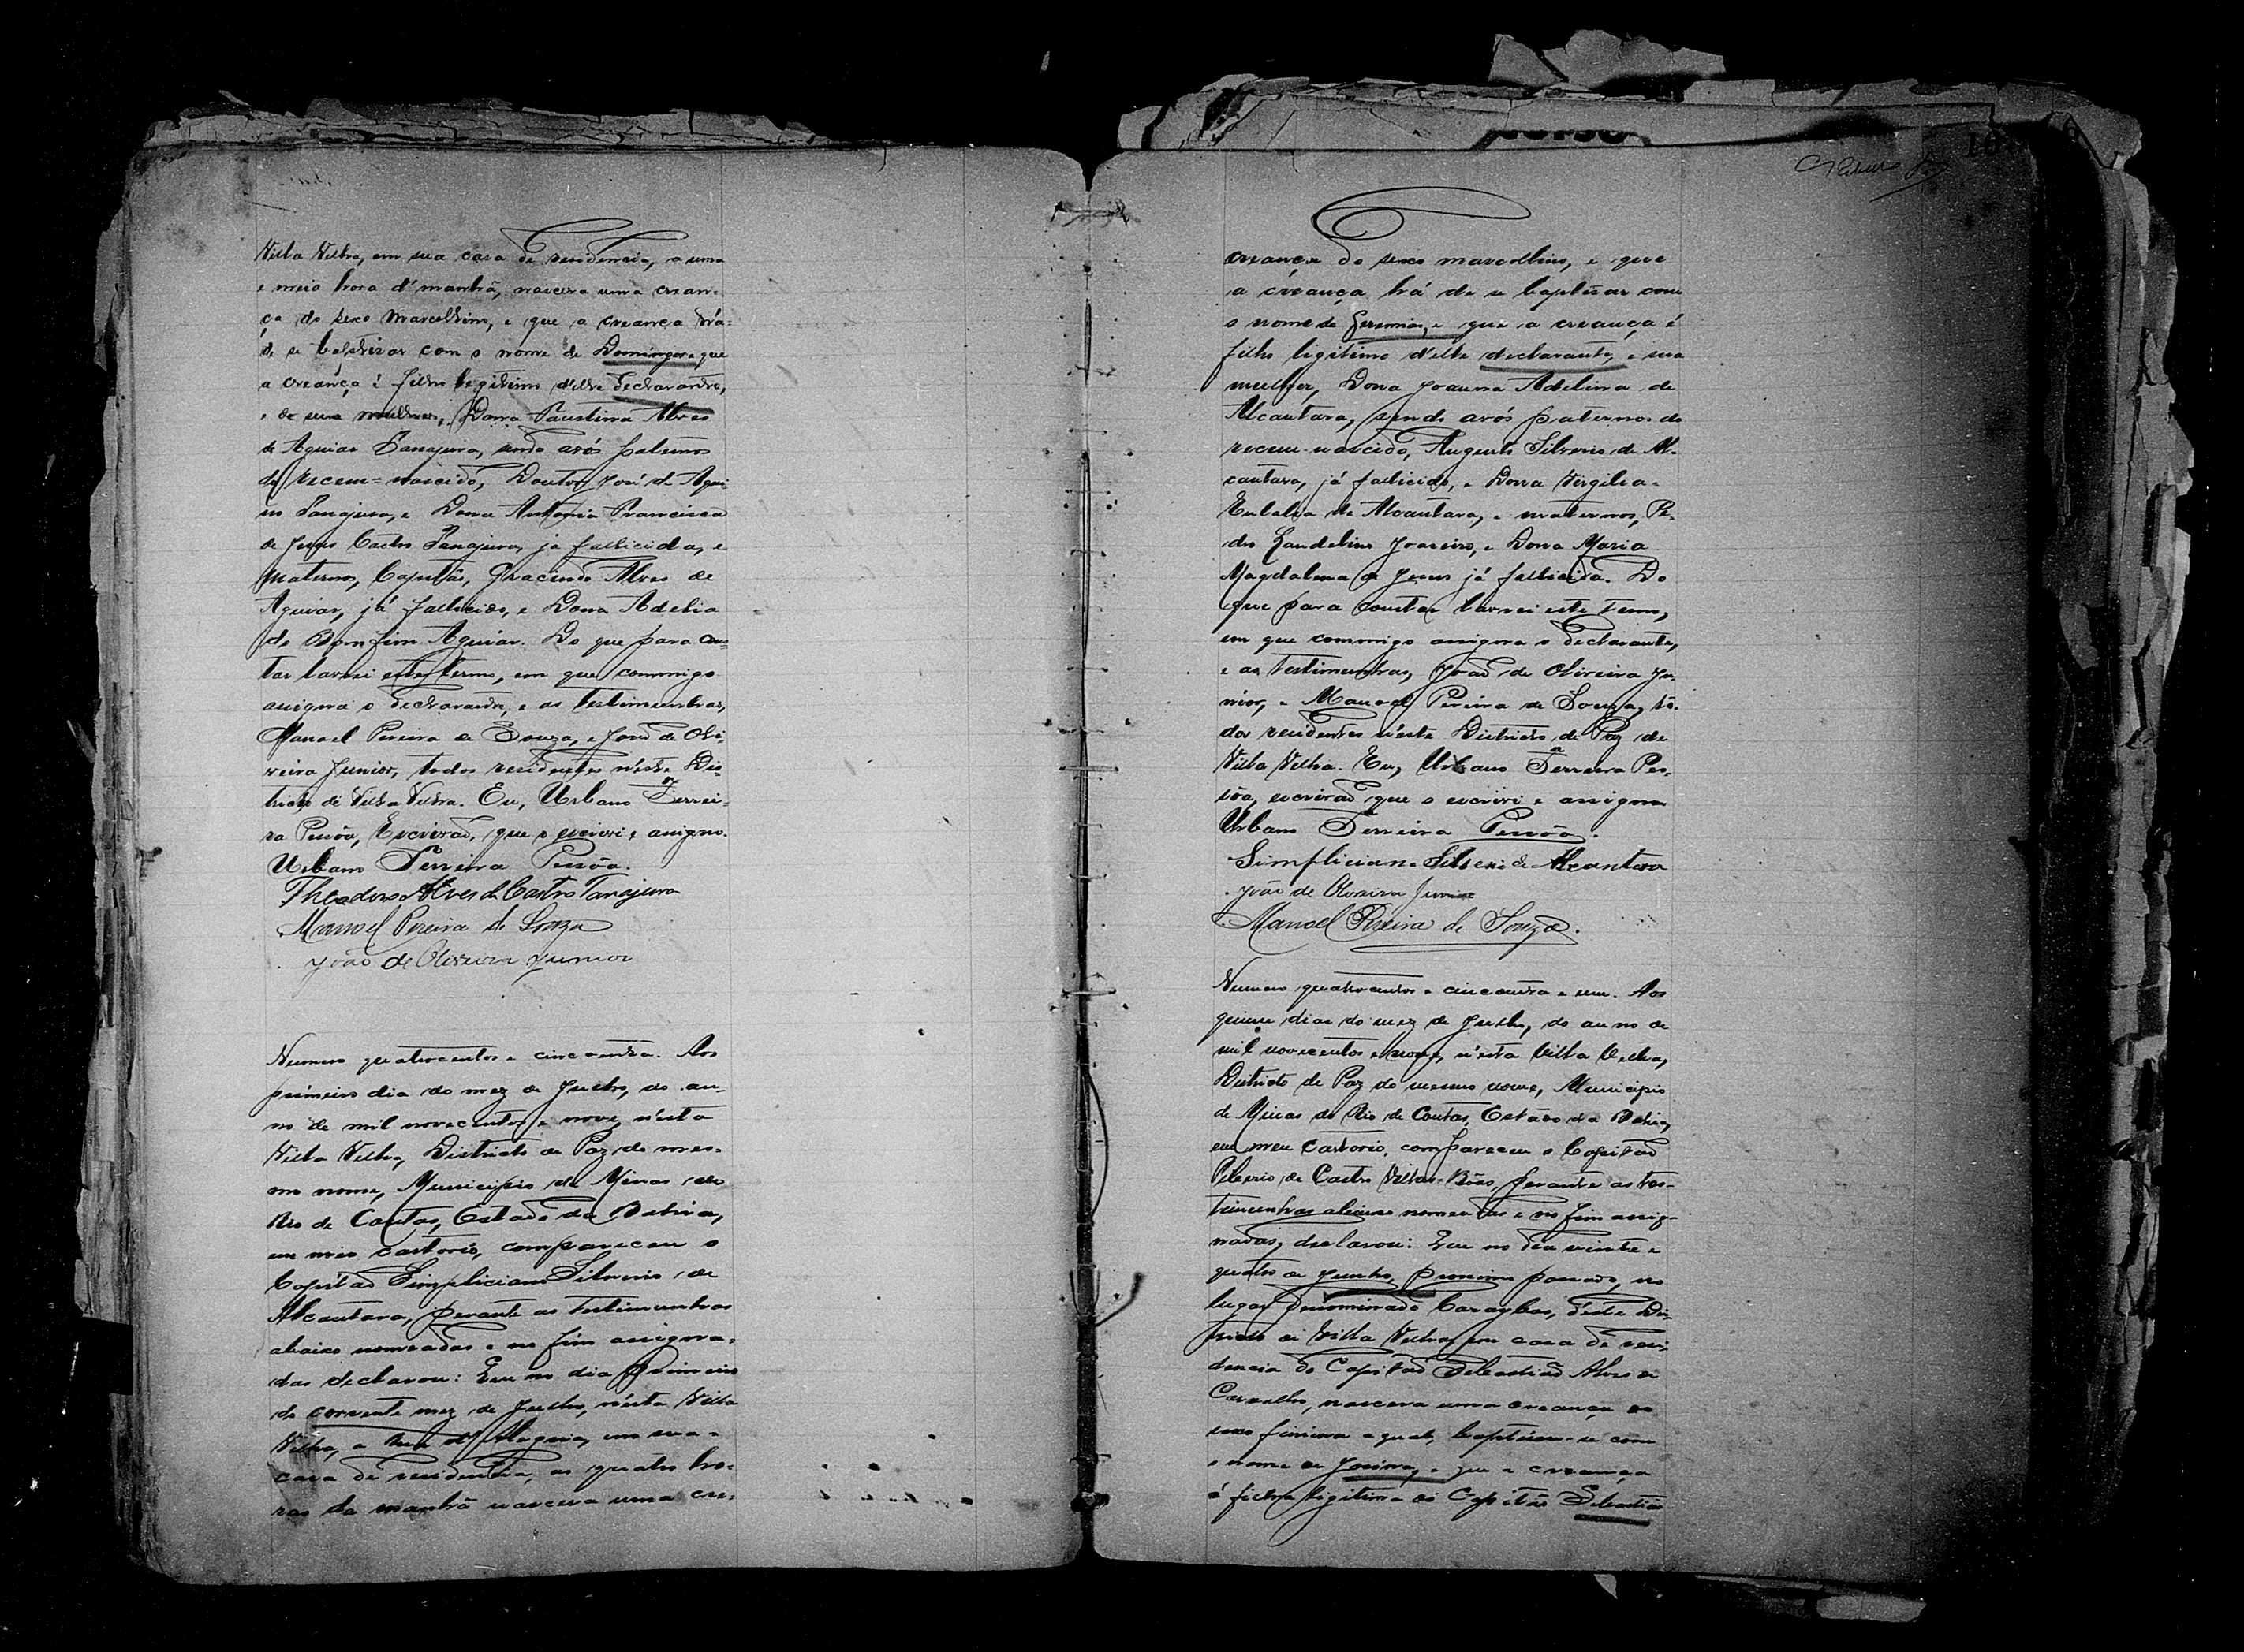 Villa Velha, em sua casa de residencia, a uma
e meia hora d'manhã, nascera uma crean-
ça do sexo masculino, e que a creança há
de se baptisar com o nome de Domingos e que
a creança é filho legitimo d'elle declarante,
e de sua mulher, Dona Faustina Alves
de Aguiar Tanajura, sendo avós paternos
do recem-nascido, Doutor José de Aqui-
no Tanajura, e Dona Antonia Francisca
de Jesus Castro Tanajura, já fallecida, e
maternos, Capitão, Gracindo Alves de
Aguiar, já fallecido, e Dona Adelia
do Bomfim Aguiar. Do que para cons-
tar lavrei este termo, em que commigo
assigna o declarante, e as testimunhas,
Manoel Pereira de Souza, e João de Oli-
veira Junior, todos residentes n'este Dis-
tricto de Villa Velha. Eu, Urbano Ferrei-
ra Pessôa, Escrivão, que o escrevi e assigno.
Urbano Ferreira Pessôa.
Theodoro Alves de Castro Tanajura
Manoel Pereira de Souza
João de Oliveira Junior
Numero quatrocentos e cincoenta. Aos
primeiro dia do mez de Julho, do an-
no de mil novecentos e nove, n'esta
Villa Velha, Districto de Paz do mes-
mo nome, Municipio de Minas do
Rio de Contas, Estado da Bahia,
em meu cartorio, compareceu o
Capitão Simpliciano Silverio de
Alcantara, perante as testimunhas
abaixo nomeadas e no fim assigna-
das declarou: Que no dia primeiro
do corrente mez de Julho, n'esta Villa
Velha, a rua d'Alegria, em sua
casa de residencia, as quatro ho-
ras da manhã nascera uma cre-
creança do sexo masculino, e que
a creança há de se baptisar com
o nome de Jeremias, e que a creança é
filho legitimo d'elle declarante, e sua
mulher, Dona Joanna Adelina de
Alcantara, sendo avós paternos do
recem-nascido, Augusto Silverio de Al-
cantara, já fallecido, e Dona Virgilia
Eulalia de Alcantara, e maternos, Pe-
dro Landelino Joazeiro, e Dona Maria
Magdalena de Jesus já fallecida. Do
que para constar lavrei este termo,
em que commigo assigna o declarante,
e as testimunhas, João de Oliveira Ju-
nior, e Manoel Pereira de Souza, to-
dos residentes n'este Districto de Paz de
Villa Velha. Eu, Urbano Ferreira Pes-
sôa, escrivão que o escrevi e assigno
Urbano Ferreira Pessôa.
Simpliciano Silverio de Alcantara
João de Oliveira Junior
Manoel Pereira de Souza.
Numero quatrocentos e cincoenta e um. Aos
quinze dias do mez de Julho, do anno de
mil novecentos e nove, n'esta Villa Velha,
Districto de Paz do mesmo nome, Municipio
de Minas do Rio de Contas, Estado da Bahia,
em meu cartorio, compareceu o Capitão
de Castro Villas-Bôas, perante as tes-
timunhas abaixo nomeadas e no fim assig-
nadas, declarou: Que no dia vinte e
quatro de Junho, proximo passado, no
lugar denominado Caraybas, d'este Dis-
tricto de Villa Velha, em casa de resi-
dencia do Capitão Sebastião Alves de
Carvalho, nascera uma creança do
sexo feminino a qual, baptisou-se com
o nome de Josina, e que a creança
é filha legitima do Capitão Sebastião